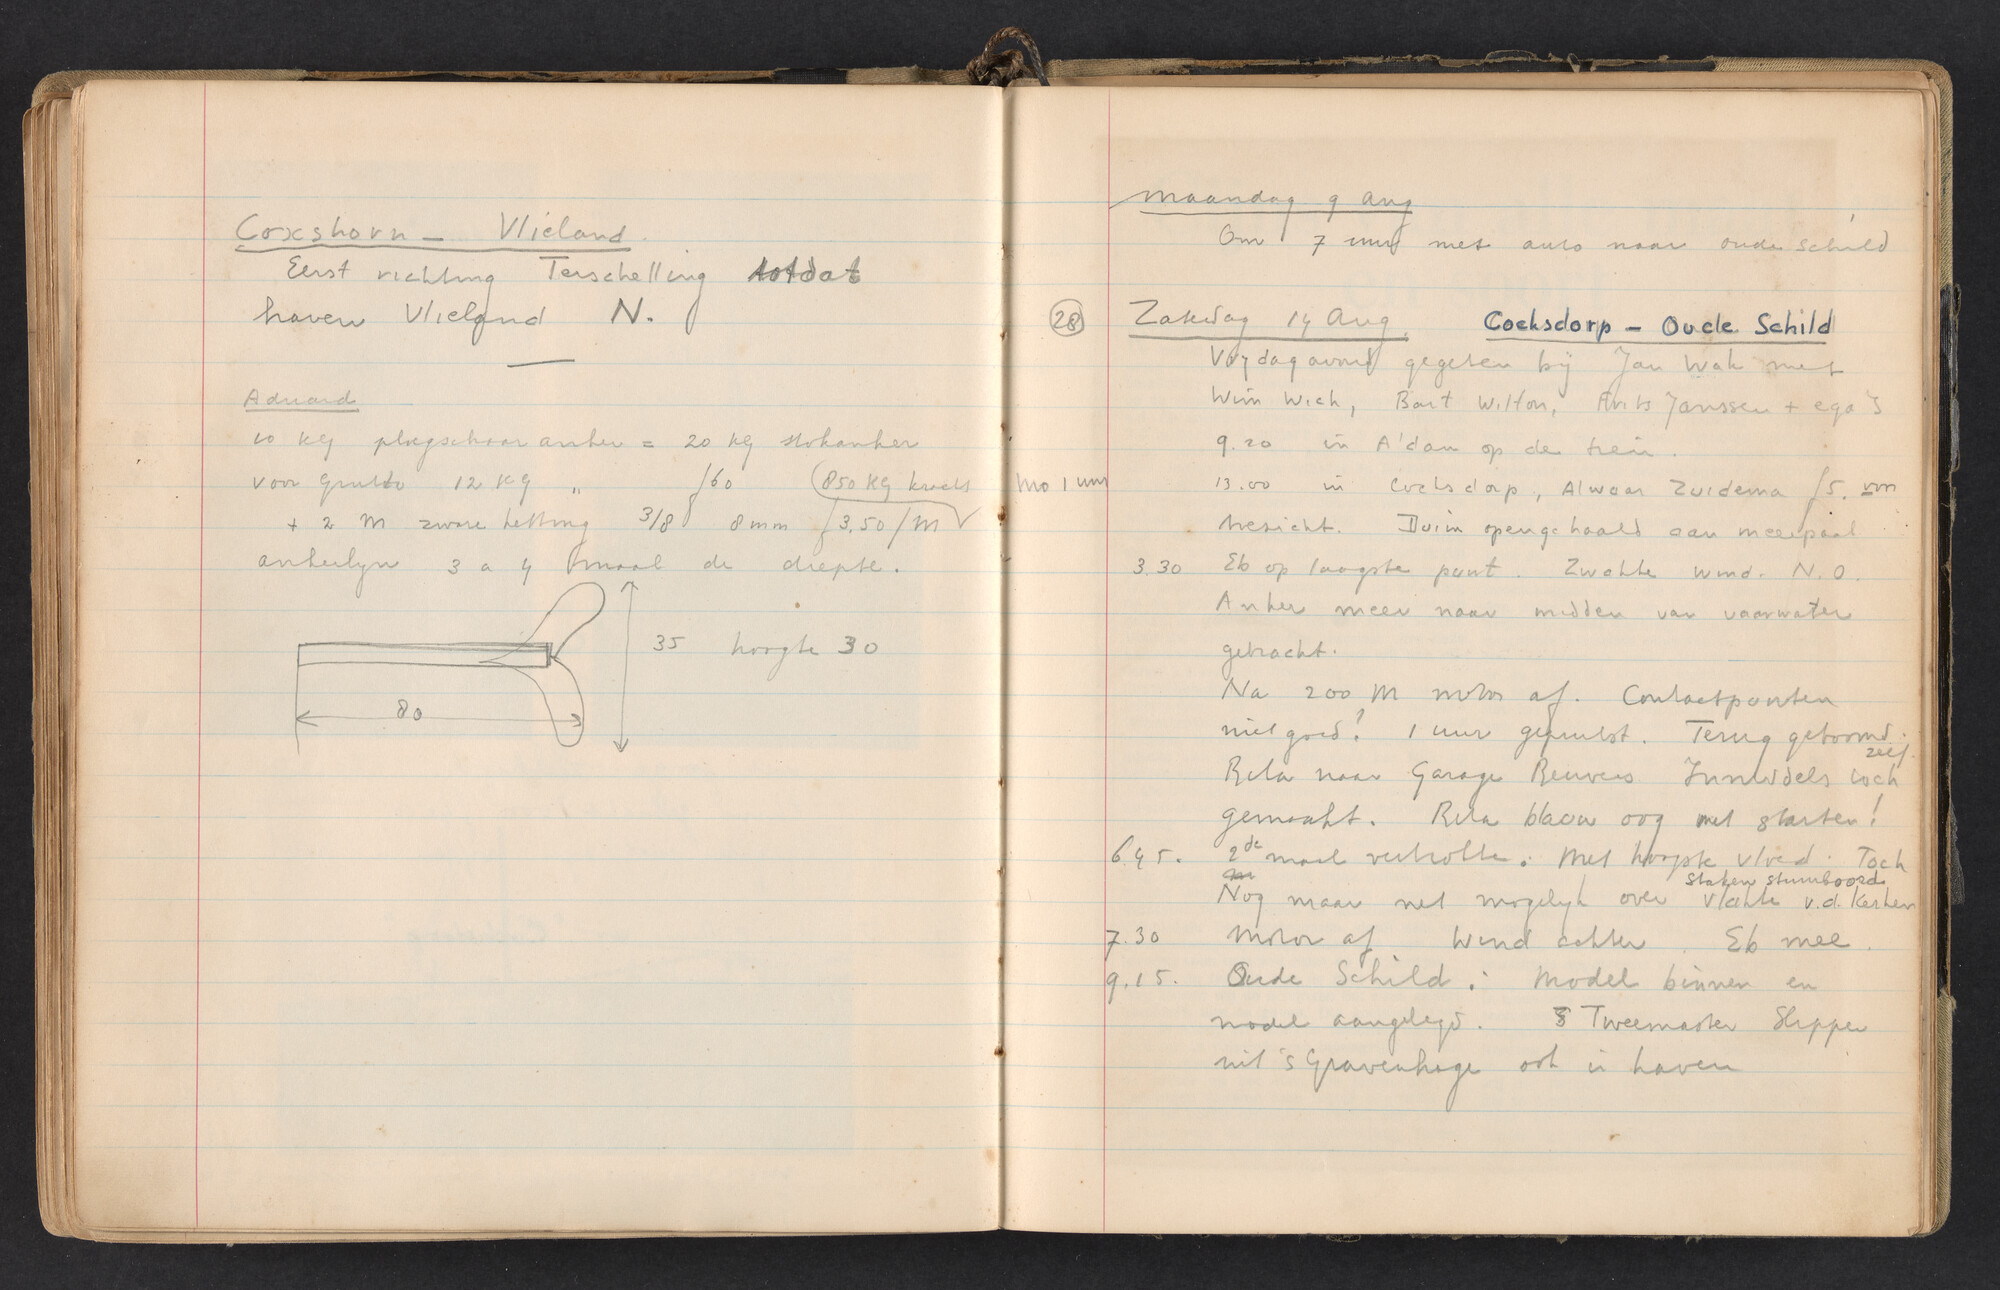 Coxshorn – Vlieland.
Eerst richting Terschelling totdat
haven Vlieland N.
Aduard
10 kg ploegschaar anker = 20 kg stokanker
voor Grutto 12 kg „ ƒ60 (850 kg kracht
+ 2 m zware ketting 3/8 8 mm ƒ3.50/M
ankerlijn 3 a 4 maal de diepte.
35 hoogte 30
80
Maandag 9 Aug
Om 7 uur met auto naar oude schild
28 Zaterdag 14 Aug. Cocksdorp – Oude Schild
Vrydagavond gegeten bij Jan Wak met
Wim Wich, Bart Wilton, Frits Janssen + ega's
9.20 in A'dam op de trein.
mo 1 uur
13.00 in Cocksdorp, Alwaar Zuidema ƒ5. voor
toezicht. Duim opengehaald aan meerpaal
3.30 Eb op laagste punt. Zwakke wind. N.O.
Anker meer naar midden van vaarwater
gebracht.
Na 200 M motor af. Contactpunten
niet goed! 1 uur geprutst. Terug geboomd.
Rita naar Garage Reuvers Inmiddels zelf toch
gemaakt. Rita blauw oog met starten!
6.45. 2de maal vertrokken. Met hoogste vloed. Toch
Nog maar net mogelijk over vlakte v.d. Kerken
staken stuurboord
7.30 Motor af Wind achter. Eb mee.
9.15. Oude Schild: Model binnen en
model aangelegd. Tweemaster Slipper
uit 's Gravenhage ook in haven